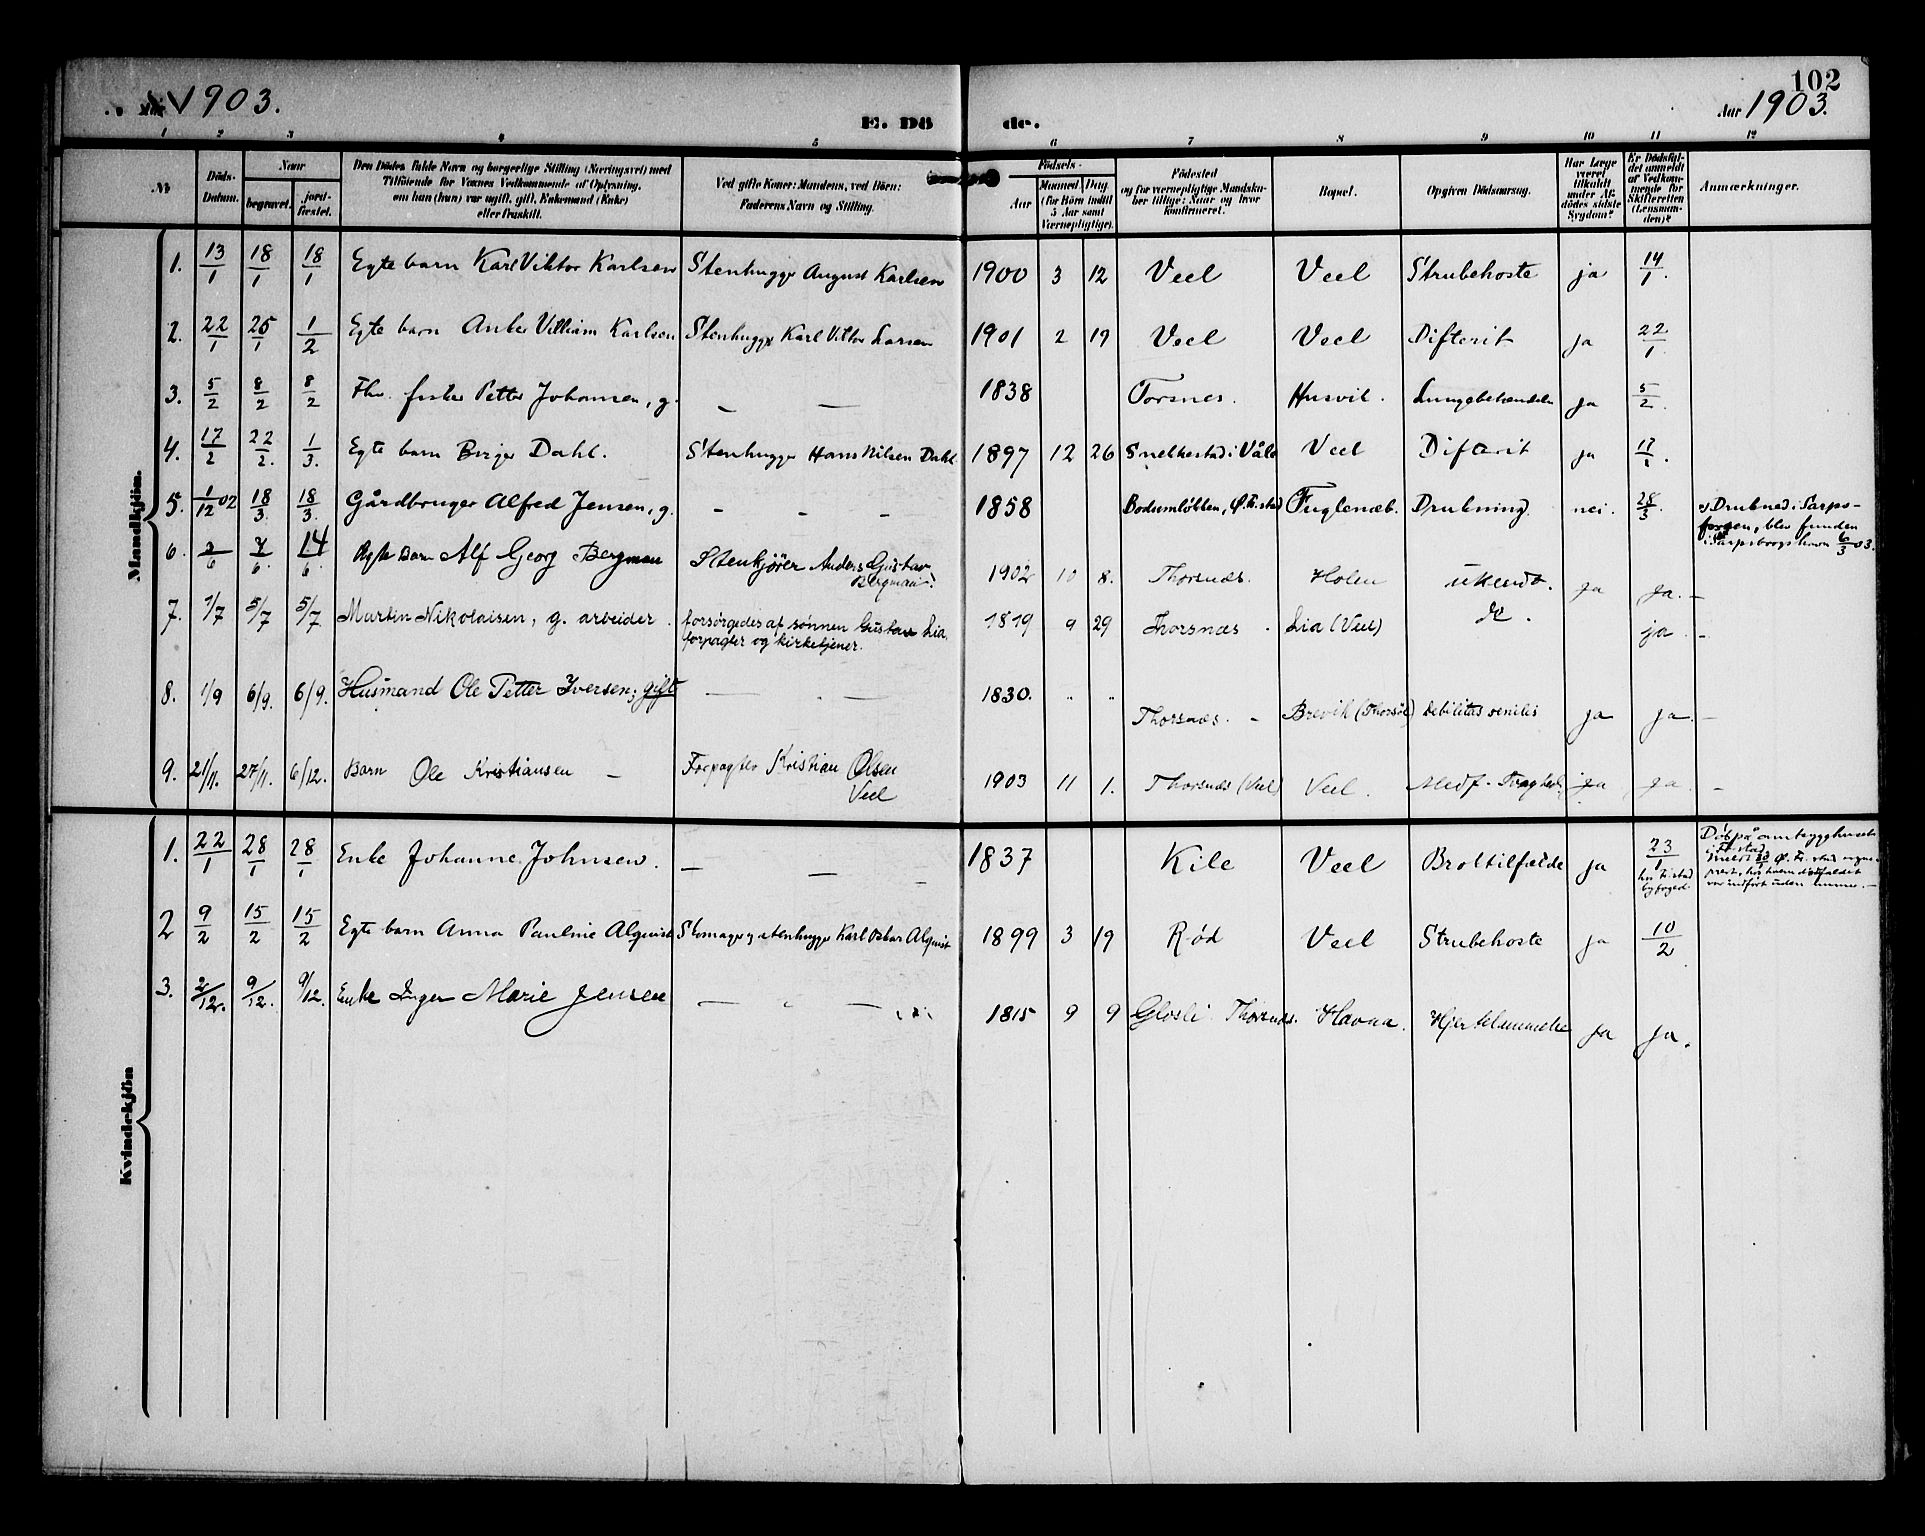 Aar 1903.
E. Dö
de.
102
Aar 1903.
1 2 3 4 5 6 7 8 9 10 11 12
No
Döds-
Datum.
Naar
begravet.
jord-
fæstet.
Den Dödes fulde Navn og borgerlige Stilling (Næringsvei) med
Tilföiende for Voxnes Vedkommende af Oplysning,
om han (hun) var ugift, gift, Enkemand (Enke)
eller fraskilt.
Ved gifte Koner: Mandens, ved Börn:
Faderens Navn og Stilling.
Födsels-
Aar
Maaned Dag
(for Börn indtil
5 Aar samt
Værnepligtige).
Födested
og for værnepligtige Mandska-
ber tillige: Naar og hvor
konfirmeret.
Bopæl.
Opgiven Dödsaarsag.
Har Læge
været
tilkaldt
under Af-
dödes sidste
Sygdom?
Er Dödsfal-
det anmeldt
af Vedkom-
mende for
Skifteretten
(Lensman-
den)?
Anmærkninger.
Mandkjön.
1. 13/1 18/1 18/1 Egte barn Karl Viktor Karlsen Stenhugger August Karlsen 1900 3 12 Veel Veel Strubehoste ja 14/1.
2. 22/1 25/1 1/2 Egte barn Anker Villiam Karlsen Stenhugger Karl Viktor Larsen 1901 2 19 Veel Veel Difterit ja 22/1.
3. 5/2 8/2 8/2 Fhv. fisker Petter Johansen, g. — — 1838 Torsnes. Husvik. Lungebetændelse ja 5/2.
4. 17/2 22/2. 1/3. Egte barn Birger Dahl. Stenhugger Hans Nilsen Dahl 1897 12 26 Snekkestad i Våle Veel Difterit ja
5. 1/12 02 18/3. 18/3. Gårdbruger Alfred Jensen, g. — — — 1858 Fuglenæb. Drukning. nei. 28/3.
Drukned i Sarps-
fossen, blev funden
i Sarpsborgs havn 6/3 03.
6. 2/6 7/6. 14/6 Egte Barn Alf Georg Bergman Stenkjörer Anders Gustav
Bergman. 1902 10 8. Thorsnæs. Holen ukendt. ja ja. —
7. 1/7 5/7 5/7 Martin Nikolaisen, g. arbeider. forsørgedes af sønnen Gustav Lia,
forpagter og kirketjener. 1819 9 29 Thorsnæs. Lia (Veel) do. ja. —
8. 1/9 6/9. 6/9. Husmand Ole Petter Iversen; gift — — 1830. " " Thorsnæs. — Brevik (Thorsö) Debilitas senilis ja ja. —
9. 21/11. 27/11. 6/12. Barn Ole Kristiansen — Forpagter Kristian Olsen
Veel 1903 11 1. Thorsnæs (Veel) Veel. Medf. Svaghed. ja ja. —
Kvindekjön
1. 22/1 28/1 28/1 Enke Johanne Johnsen. — — — 1837 Kile Veel Broktilfælde ja 23/1
hos Fr.stad
byfoged.
2 9/2 15/2 15/2 Egte barn Anna Pauline Alquist Skomager og stenhugger Karl Oskar Alquist 1899 3 19 Rød Veel Strubehoste ja 10/2
3. 2/12. 9/12. 9/12. Enke Inger Marie Jensen — " — 1815 9 9 Thorsnæs. Havna. ja ja.